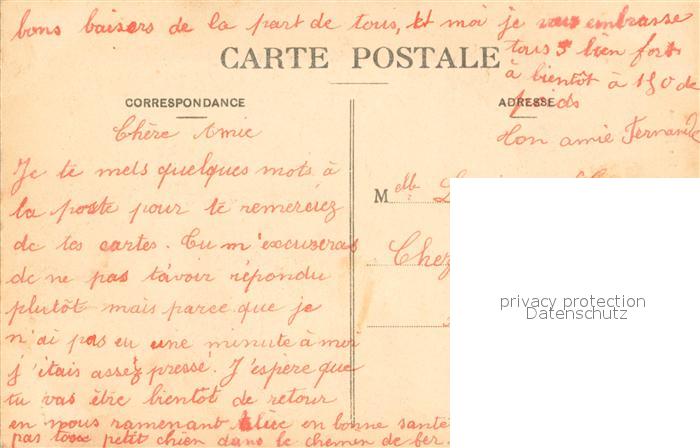 bons baisers de la part de tous, et moi je vous embrasse
tous 5 bien fort
à bientôt à 150 de
CARTE POSTALE
CORRESPONDANCE
ADRESSE
Mon amie Fernande
Chère Amie
Je te mets quelques mots à
la poste pour te remerciez
de tes cartes. Tu m'excuseras
de ne pas t'avoir répondu
plutôt mais parce que je
n'ai pas eu une minute à moi
j'étais assez pressé. J'espère que
tu vas être bientôt de retour
en nous ramenant en bonne santé
pas petit chien dans le chemin de ber
Melle
Chez
privacy protection
Datenschutz